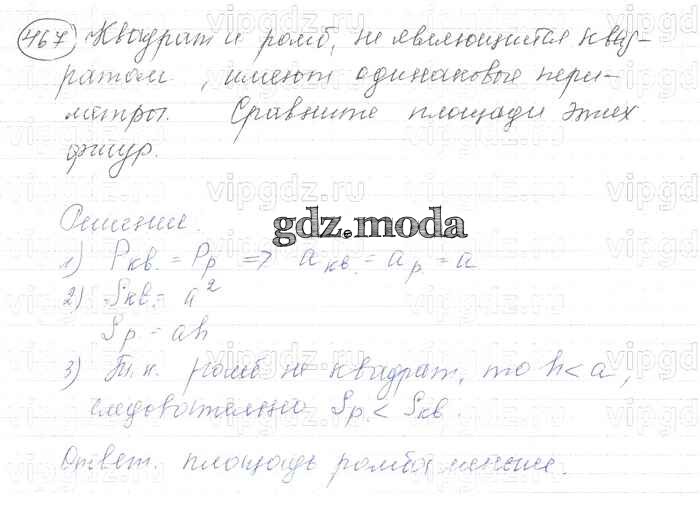 467 Квадрат и ромб, не являющийся квад-
ратом, имеют одинаковые пери-
метры. Сравните площади этих
фигур.
Решение.
gdz.moda
1) Pкв. = Pр => aкв. = aр. = a
2) Sкв. = a²
Sр. = ah
3) Т.к. ромб не квадрат, то h < a,
следовательно Sр. < Sкв.
Ответ. площадь ромба меньше.